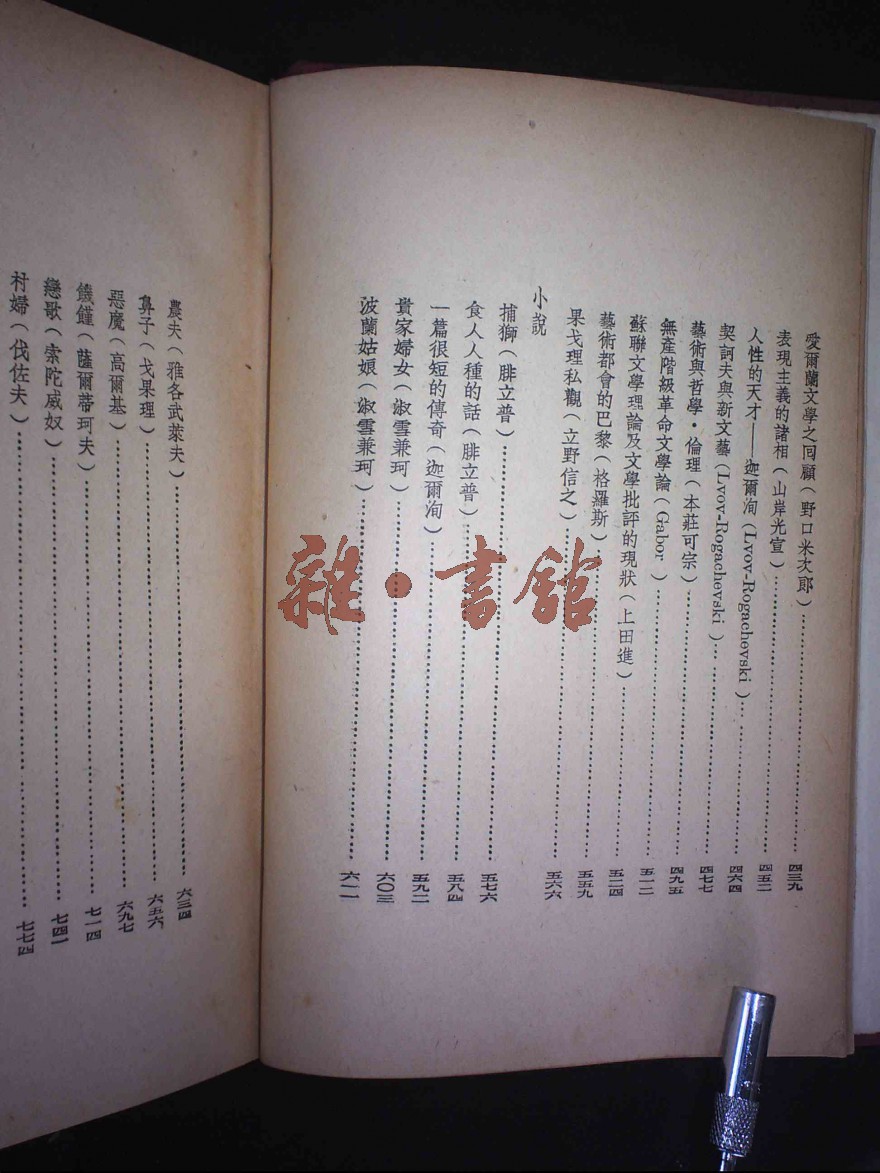 愛爾蘭文學之回顧(野口米次郎)……四三九
表現主義的諸相(山岸光宣)……四五二
人性的天才——迦爾洵(Lvov-Rogachevski)……四六四
契訶夫與新文藝(Lvov-Rogachevski)……四七七
藝術與哲學・倫理(本莊可宗)……四九五
無產階級革命文學論(Gabor)……五一二
蘇聯文學理論及文學批評的現狀(上田進)……五二四
藝術都會的巴黎(格羅斯)……五五九
果戈理私觀(立野信之)……五六六
小說
捕獅(腓立普)……五七六
食人人種的話(腓立普)……五八四
一篇很短的傳奇(迦爾洵)……五九二
貴家婦女(淑雪兼珂)……六〇三
波蘭姑娘(淑雪兼珂)……六一一
農夫(雅各武萊夫)……六三四
鼻子(戈果理)……六五六
惡魔(高爾基)……六九七
饑饉(薩爾蒂珂夫)……七一四
戀歌(索陀威奴)……七四一
村婦(伐佐夫)……七七四
雜・書館